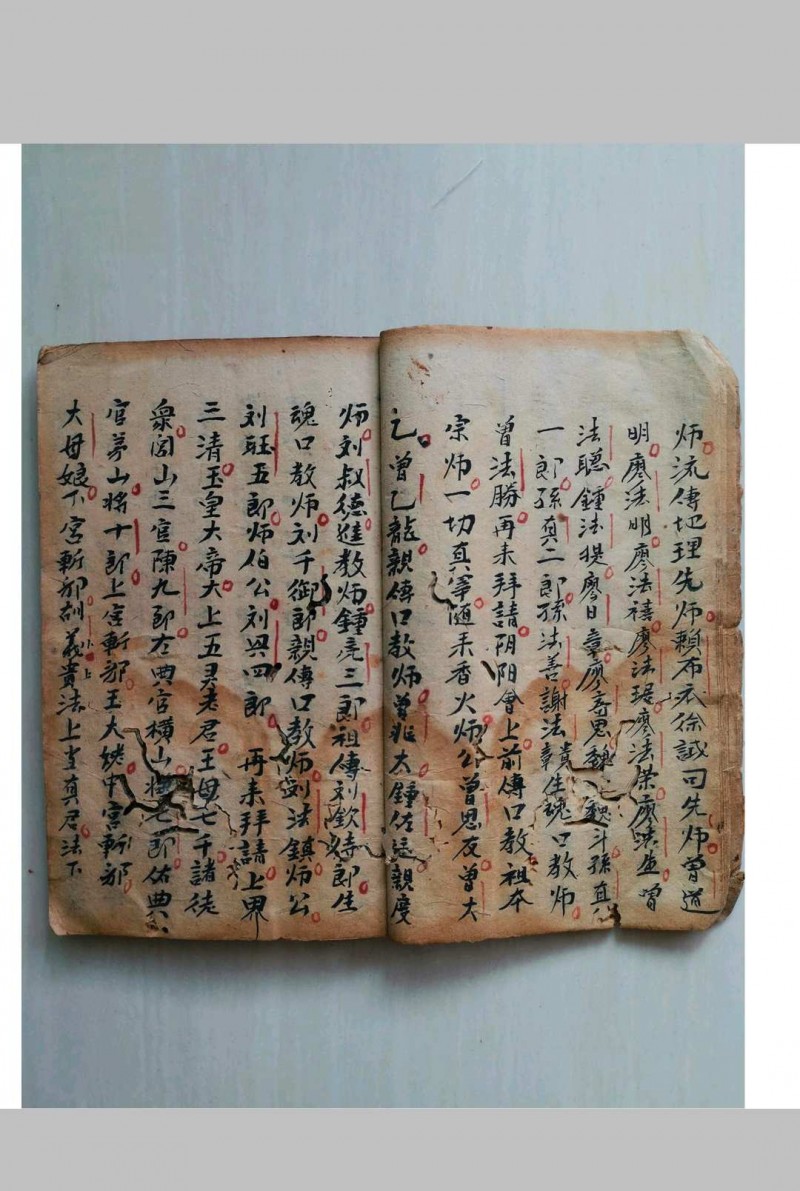 师流傳地理先师賴布衣徐誠司先师曾道
明廖法明廖法禧廖法琚廖法荣廖法 曾
法聪鍾法提廖日章廖 思魏 魏斗孫真
一郎孫真二郎孫法善謝法章 生魂口教师
曾法勝再来拜請阴阳會上前傳口教祖本
宗师一切真宰随来香火师公曾思友曾太
乙曾乙龍親傳口教师曾兆太鍾佐廷親度
师刘叔德進教师鍾亮三郎祖傳刘欽 郎生
魂口教师刘千御郎親傳口教师刘法鎮师公
刘 五郎师伯公刘兴四郎 再来拜請上界
三清玉皇大帝大上五灵老君王母七千諸徒
衆闾山三官陳九郎左典官横山 七郎佑典
官茅山將十郎上宫斬邪王大姥中宫斬邪
大母娘下宫斬邪 小上 義貴法上全真君法下